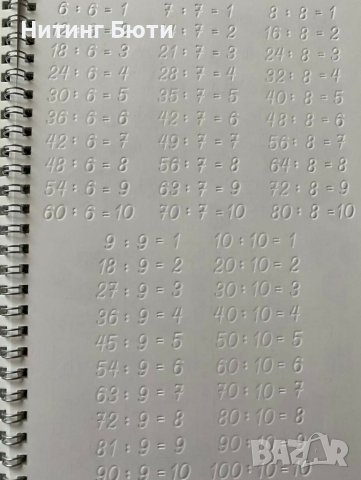 Нитинг Бюти
6 : 6 = 1 7 : 7 = 1 8 : 8 = 1
12 : 6 = 2 14 : 7 = 2 16 : 8 = 2
18 : 6 = 3 21 : 7 = 3 24 : 8 = 3
24 : 6 = 4 28 : 7 = 4 32 : 8 = 4
30 : 6 = 5 35 : 7 = 5 40 : 8 = 5
36 : 6 = 6 42 : 7 = 6 48 : 8 = 6
42 : 6 = 7 49 : 7 = 7 56 : 8 = 7
48 : 6 = 8 56 : 7 = 8 64 : 8 = 8
54 : 6 = 9 63 : 7 = 9 72 : 8 = 9
60 : 6 = 10 70 : 7 = 10 80 : 8 = 10
9 : 9 = 1 10 : 10 = 1
18 : 9 = 2 20 : 10 = 2
27 : 9 = 3 30 : 10 = 3
36 : 9 = 4 40 : 10 = 4
45 : 9 = 5 50 : 10 = 5
54 : 9 = 6 60 : 10 = 6
63 : 9 = 7 70 : 10 = 7
72 : 9 = 8 80 : 10 = 8
81 : 9 = 9 90 : 10 = 9
90 : 9 = 10 100 : 10 = 10
bazar